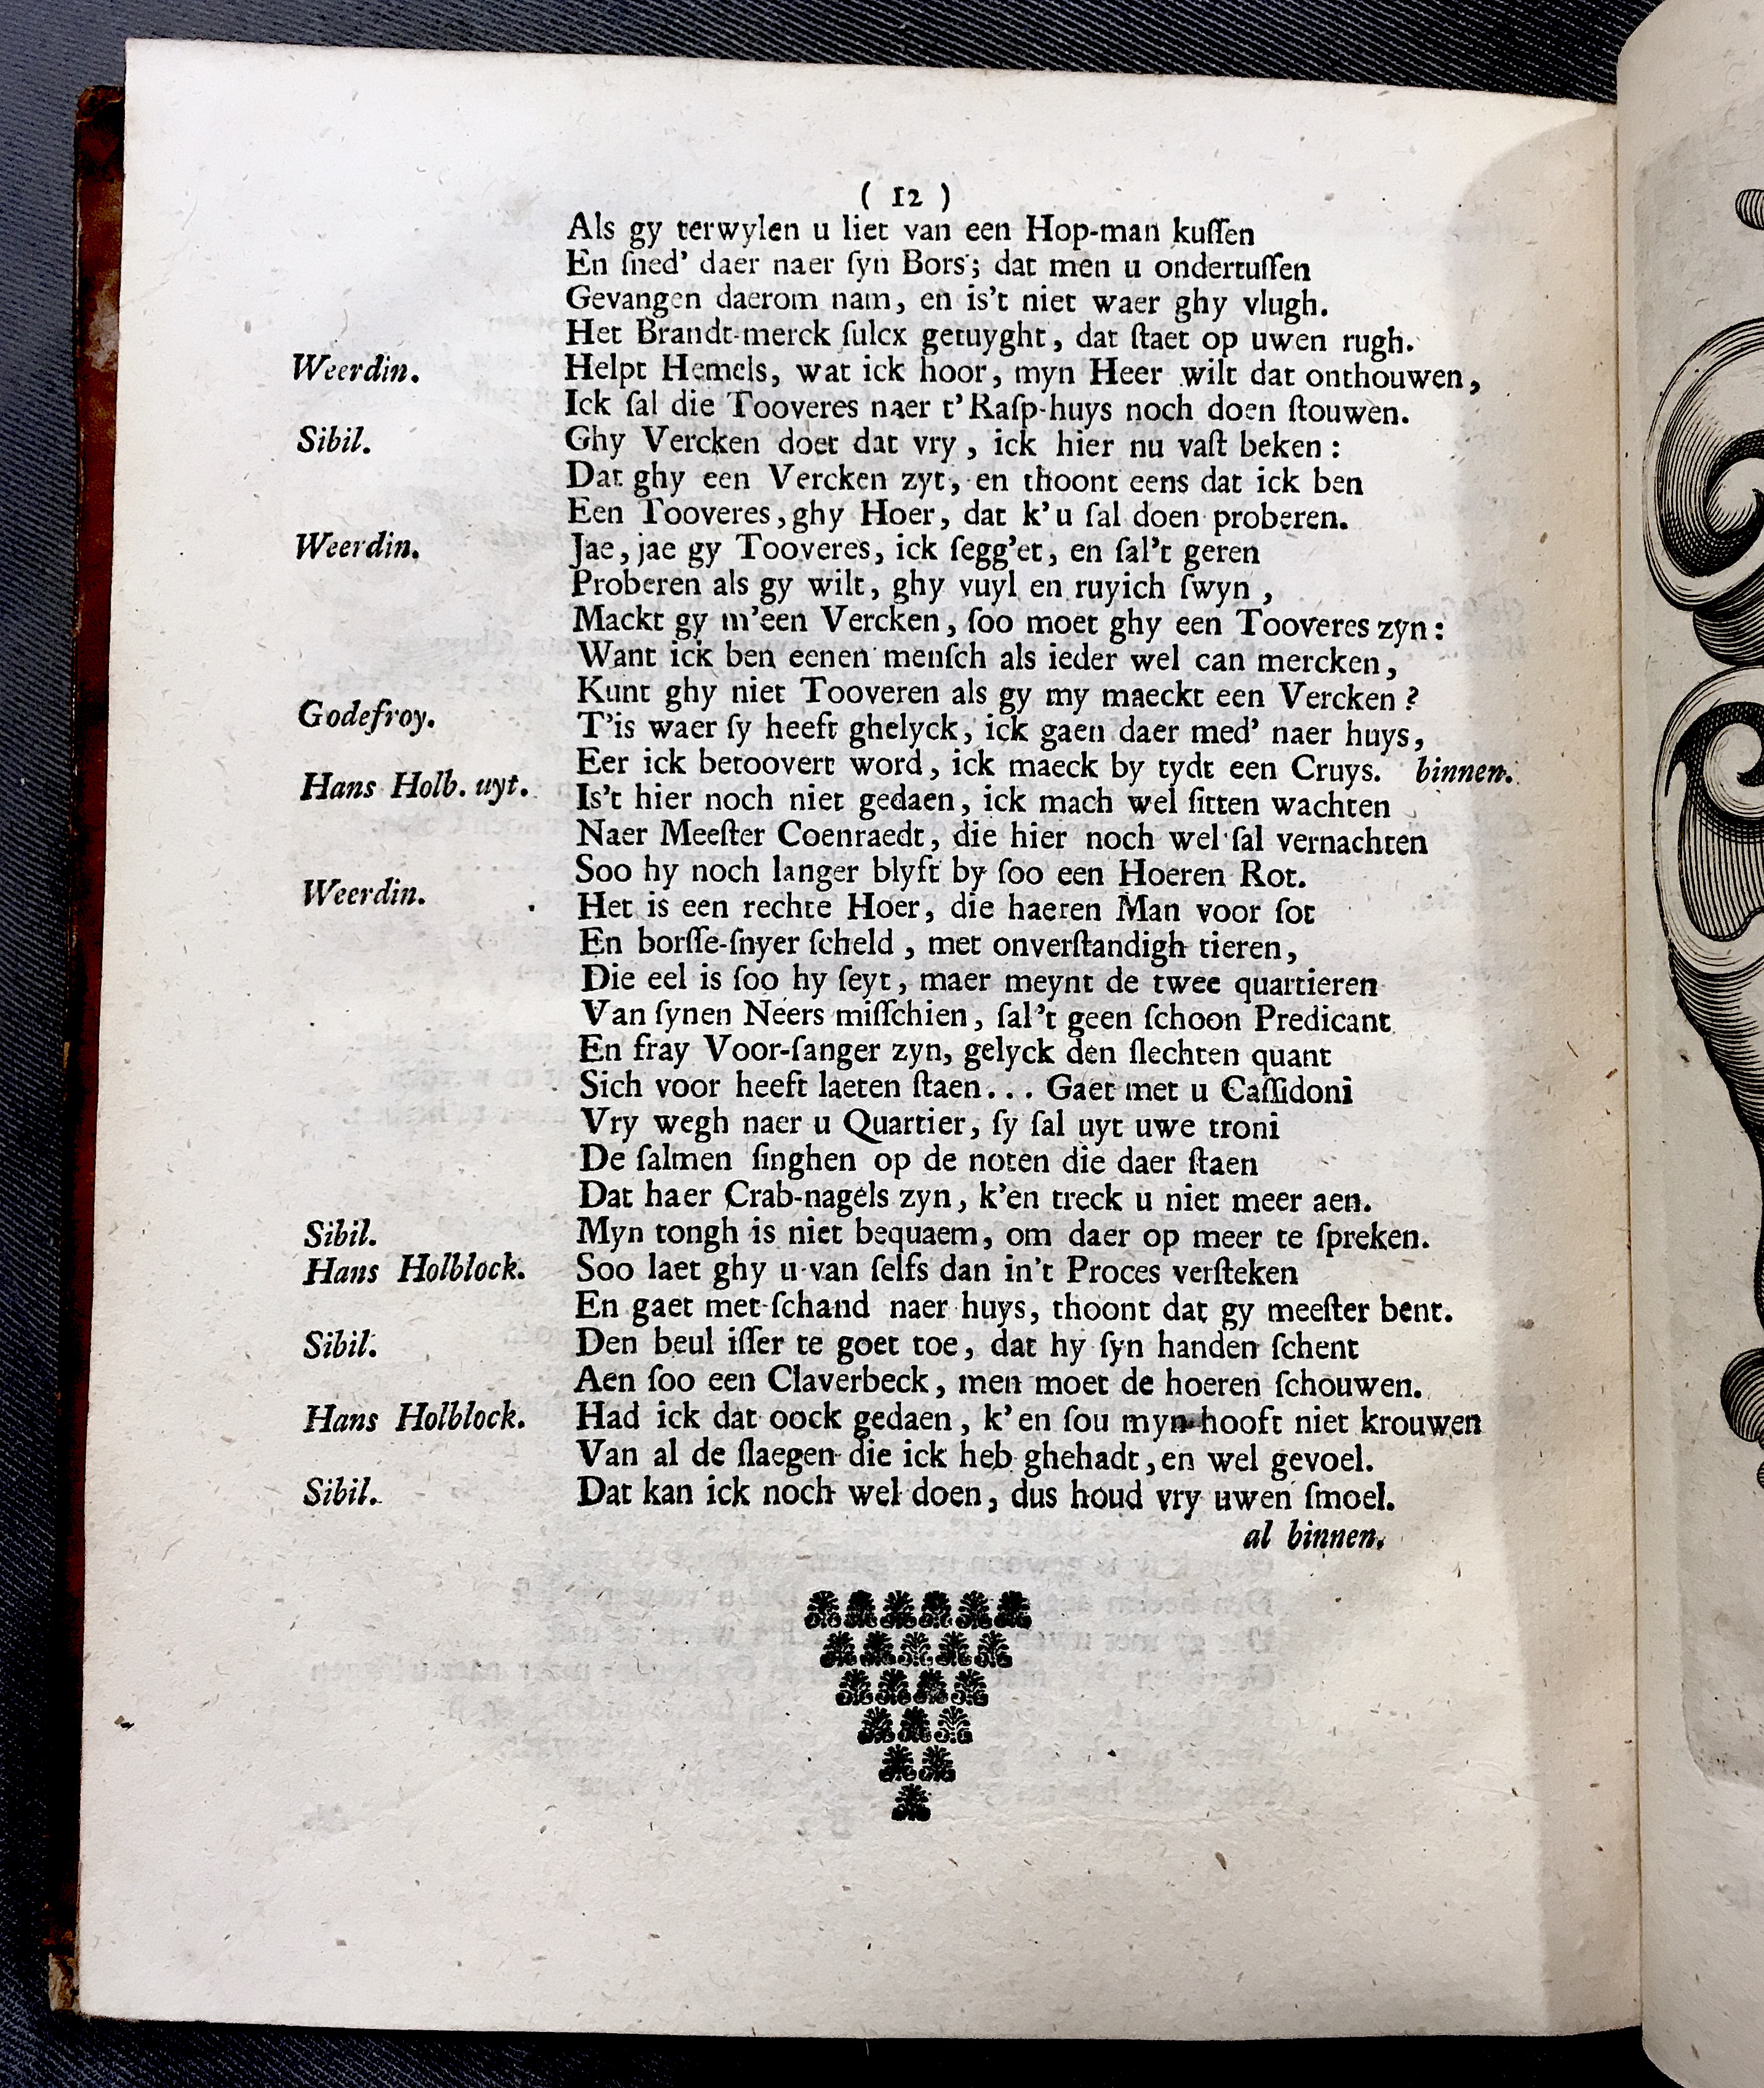 ( 12 )
Als gy terwylen u liet van een Hop-man kuſſen
En ſned' daer naer ſyn Bors; dat men u ondertuſſen
Gevangen daerom nam, en is't niet waer ghy vlugh.
Het Brandt-merck ſulcx getuyght, dat ſtaet op uwen rugh.
Weerdin. Helpt Hemels, wat ick hoor, myn Heer wilt dat onthouwen,
Ick ſal die Tooveres naer t'Raſp-huys noch doen ſtouwen.
Sibil. Ghy Vercken doet dat vry, ick hier nu vaſt beken:
Dat ghy een Vercken zyt, en thoont eens dat ick ben
Een Tooveres, ghy Hoer, dat k'u ſal doen proberen.
Weerdin. Jae, jae gy Tooveres, ick ſegg'et, en ſal't geren
Proberen als gy wilt, ghy vuyl en ruyich ſwyn,
Mackt gy m'een Vercken, ſoo moet ghy een Tooveres zyn:
Want ick ben eenen menſch als ieder wel can mercken,
Kunt ghy niet Tooveren als gy my maeckt een Vercken?
Godefroy. T'is waer ſy heeft ghelyck, ick gaen daer med' naer huys,
Eer ick betoovert word, ick maeck by tydt een Cruys. binnen.
Hans Holb. uyt. Is't hier noch niet gedaen, ick mach wel ſitten wachten
Naer Meeſter Coenraedt, die hier noch wel ſal vernachten
Soo hy noch langer blyft by ſoo een Hoeren Rot.
Weerdin. Het is een rechte Hoer, die haeren Man voor ſot
En borſſe-ſnyer ſcheld, met onverſtandigh tieren,
Die eel is ſoo hy ſeyt, maer meynt de twee quartieren
Van ſynen Neers miſſchien, ſal't geen ſchoon Predicant
En fray Voor-ſanger zyn, gelyck den ſlechten quant
Sich voor heeft laeten ſtaen... Gaet met u Caſſidoni
Vry wegh naer u Quartier, ſy ſal uyt uwe troni
De ſalmen ſinghen op de noten die daer ſtaen
Dat haer Crab-nagels zyn, k'en treck u niet meer aen.
Sibil. Myn tongh is niet bequaem, om daer op meer te ſpreken.
Hans Holblock. Soo laet ghy u van ſelfs dan in't Proces verſteken
En gaet met ſchand naer huys, thoont dat gy meeſter bent.
Sibil. Den beul iſſer te goet toe, dat hy ſyn handen ſchent
Aen ſoo een Claverbeck, men moet de hoeren ſchouwen.
Hans Holblock. Had ick dat oock gedaen, k'en ſou myn hooft niet krouwen
Van al de ſlaegen die ick heb ghehadt, en wel gevoel.
Sibil. Dat kan ick noch wel doen, dus houd vry uwen ſmoel.
al binnen.